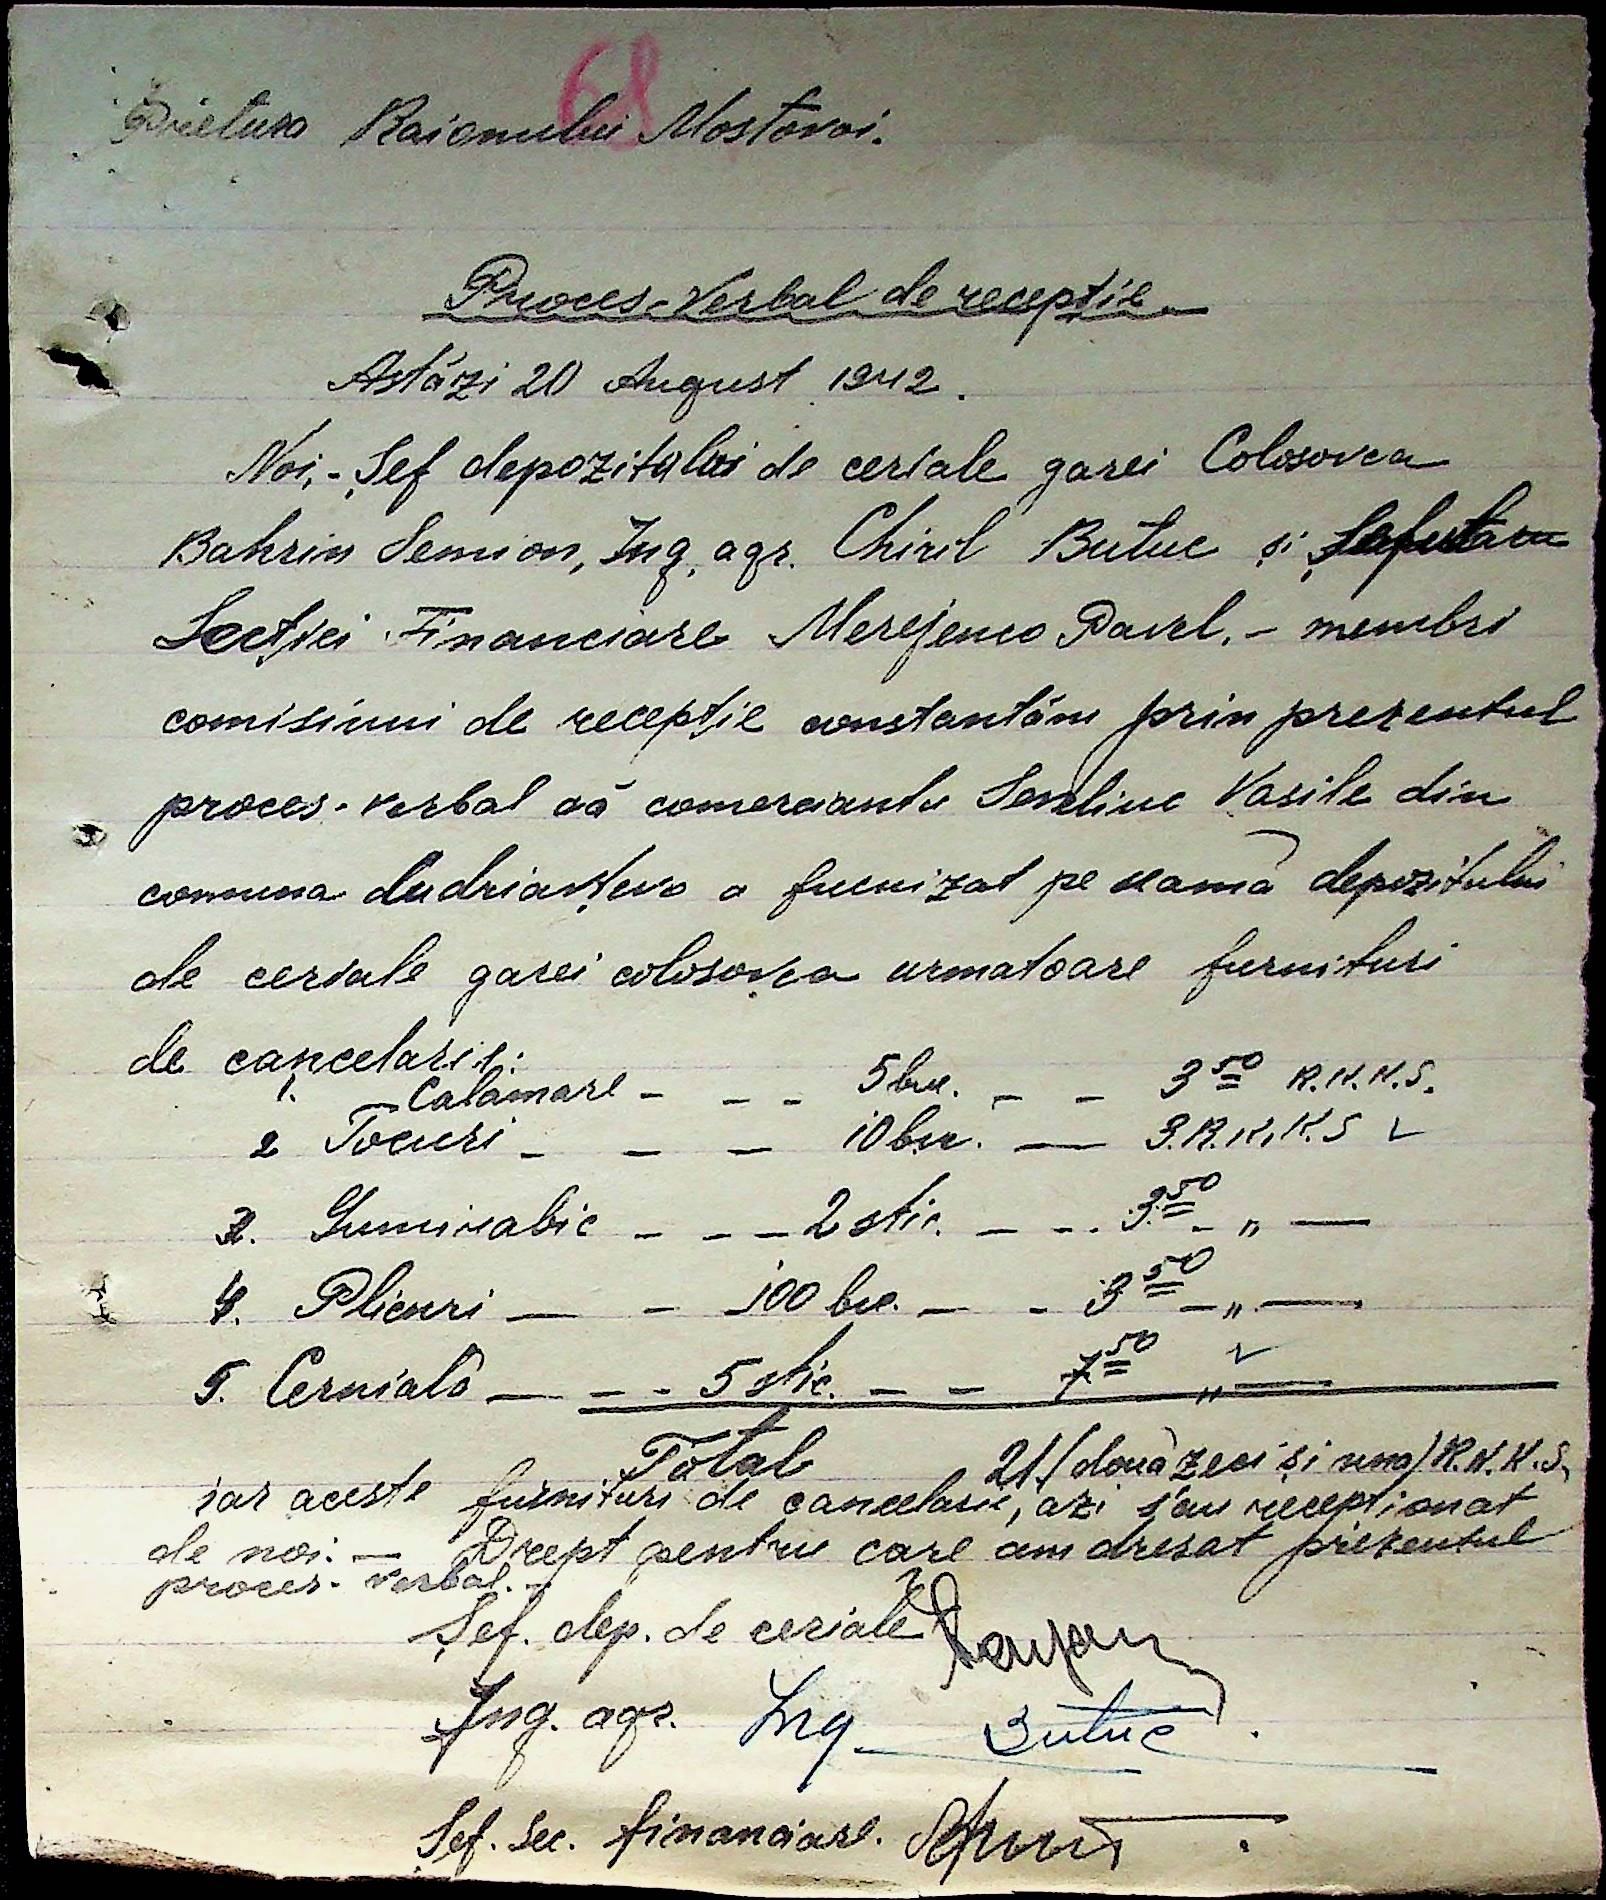 68
Pretura Raionului Mostovoi.
Proces-Verbal de recepție
Astăzi 20 August 1942.
Noi,- Șef depozitului de ceriale garei Colosovca
Bahrin Semion, Ing. agr. Chiril Butuc și
Secției Financiare Merejenco Pavel. - membri
comisiuni de recepție constantăm prin prezentul
proces-verbal că comerciantu Vasile din
comuna a furnizat pe sama depozitului
de ceriale garei colosovca urmatoare furnituri
de cancelarie:
1. Calamare - - - 5 buc. - - 3 50 R.K.K.S.
2 Tocuri - - - 10 buc. — 3. R.K.K.S
3. Gumirabic - - - 2 stic. - - 3. 50 - „ —
4. Plicuri — - 100 buc. - - 3 50 - „ —
5. Cernială — - - 5 stic. - - 7 50 „ —
Total 21 (două zeci și una) R.K.K.S.
iar aceste furnituri de cancelarie, azi s'au recepționat
de noi. — Drept pentru care am dresat prezentul
proces-verbal.-
Șef. dep. de ceriale
Ing. agr. Ing Butuc
Șef. sec. financiare.